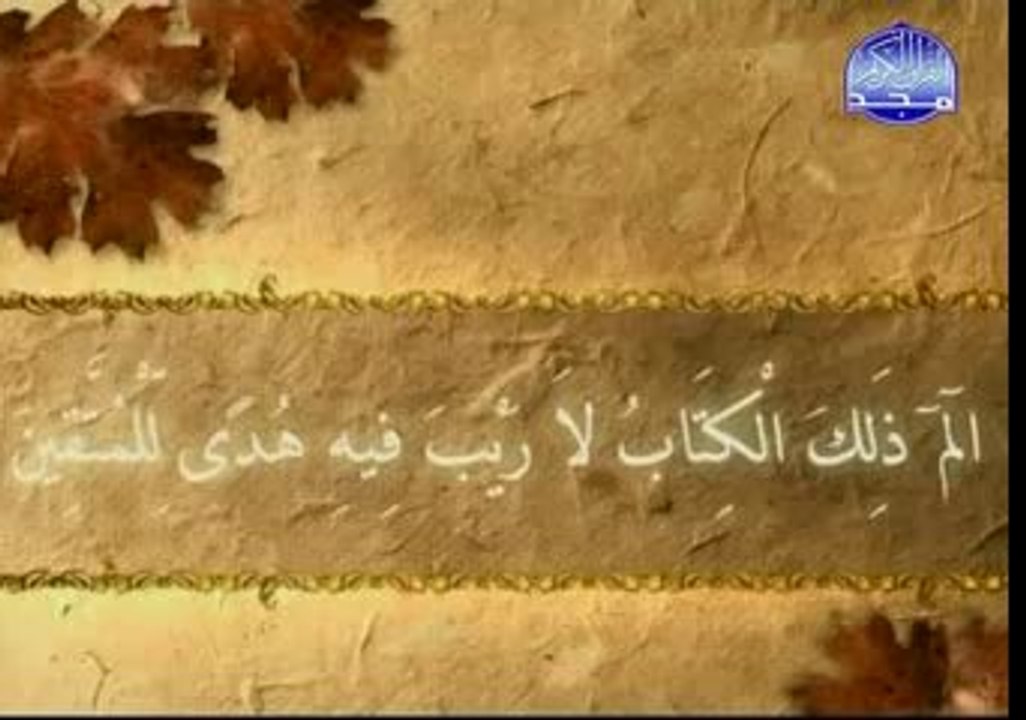 القرآن الكريم
مجد
الٓمٓ ذَلِكَ الْكِتَابُ لاَ رَيْبَ فِيهِ هُدًى لِّلْمُتَّقِينَ